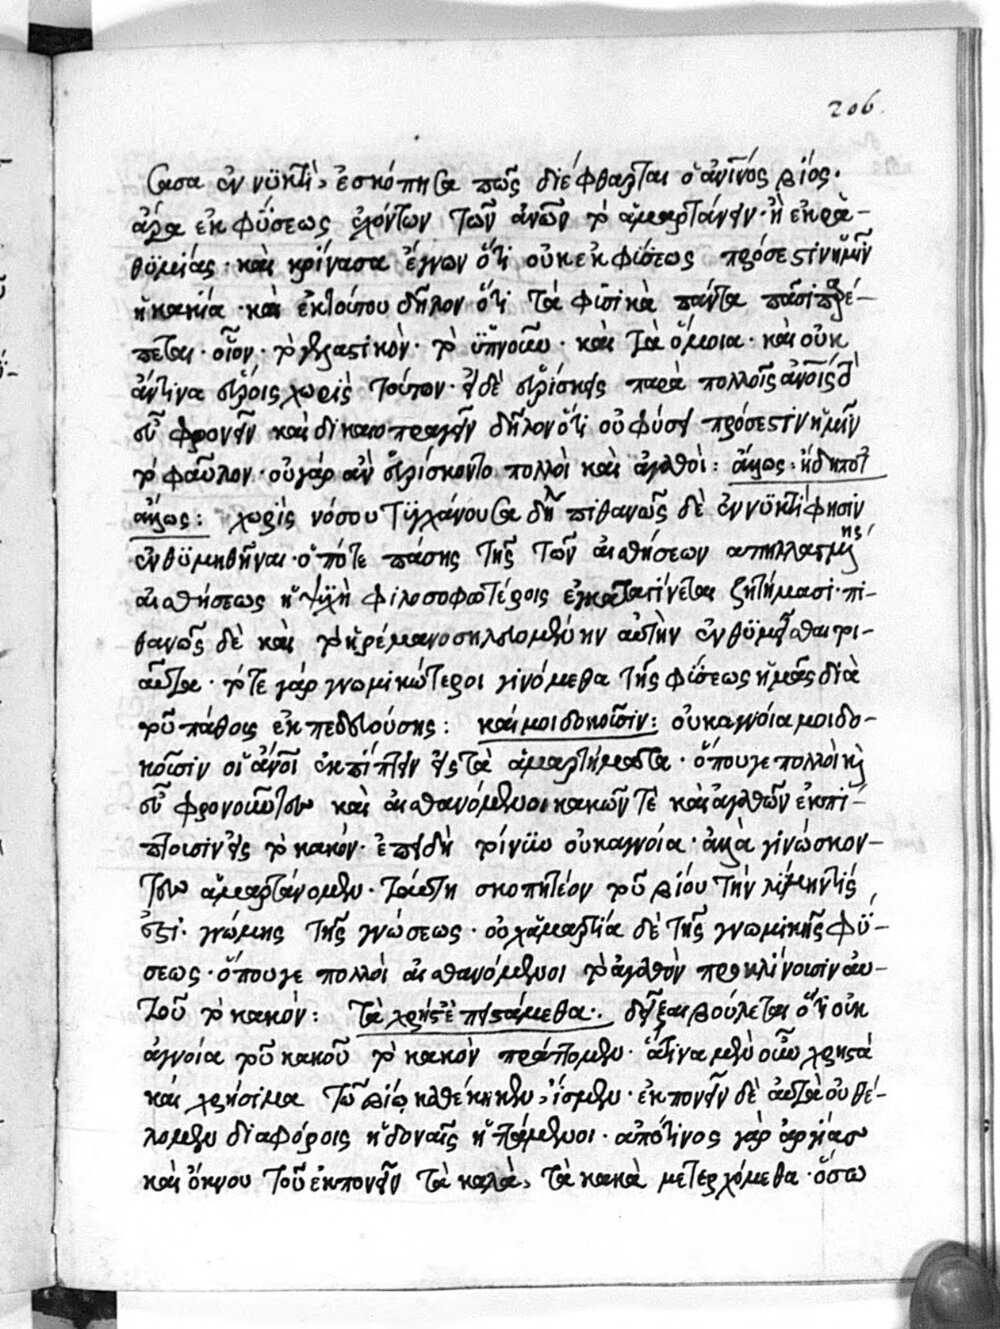 206
σασα ἐν νυκτὶ, ἐσκόπησα πῶς διέφθαρται ὁ ἀνινός βίος.
ἆρα ἐκ φύσεως ἐχόντων τῶν ἀνῶν τὸ ἁμαρτάνειν. ἢ ἐκ ρα-
θυμίας. καὶ κρίνασα ἔγνων ὅτι οὐκ ἐκ φύσεως πρόσεστιν ἡμῖν
ἡ κακία. καὶ ἐκ τούτου δῆλον ὅτι τὰ φυσικὰ πάντα πᾶσι πρέ-
πεται. οἷον. τὸ γελαστικὸν. τὸ ὑπνοῦν. καὶ τὰ ὅμοια. καὶ οὐκ
ἄν τινα εὕροις χωρὶς τούτων. εἰ δὲ εὑρίσκεις παρὰ πολλοῖς ἀνοις τὸ
εὖ φρονεῖν καὶ δικαιοπραγεῖν δῆλον ὅτι οὐ φύσει πρόσεστιν ἡμῖν
τὸ φαῦλον. οὐ γὰρ ἂν εὑρίσκοντο πολλοὶ καὶ ἀγαθοί: ἄλλως: ἤδη ποτ
ἄλλως: χωρὶς νόσου τυγχάνουσα δηλ πιθανῶς δὲ ἐν νυκτί φησιν
ἐνθυμηθῆναι. ὁπότε πάσης τῆς τῶν αἰσθήσεων ἀπηλλαγμένης
αἰσθήσεως ἡ ψυχὴ φιλοσοφωτέροις ἐγκαταγίνεται ζητήμασι. πι-
θανῶς δὲ καὶ τὸ
αῦτα. τότε γάρ γνωμικώτεροι γινόμεθα τῆς φύσεως ἡμᾶς διὰ
τοῦ πάθους ἐκπεδευούσης: καί μοι δοκοῦσιν: οὐκ ἀγνοία μοι δο-
κοῦσιν οἱ ἄνοι ἐκπίπτειν εἰς τὰ ἁμαρτήματα. ὅπου γε πολλοὶ κ
εὖ φρονοῦντων καὶ αἰσθανόμενοι κακῶν τὲ καὶ ἀγαθῶν ἐκπί-
πτουσιν εἰς τὸ κακόν. ἐπειδὴ τοίνυν οὐκ ἀγνοία. ἀλλὰ γινώσκον-
των ἁμαρτάνομεν. ταύτη σκοπητέον τοῦ βίου τὴν
ἔστι. γνώμης τῆς γνώσεως. οὐχ ἁμαρτία δὲ τῆς γνωμικῆς φύ-
σεως. ὅπου γε πολλοὶ αἰσθανόμενοι τὸ ἀγαθὸν προκλίνουσιν αυ-
τοῦ τὸ κακὸν: τὰ χρήστ ἐπιστάμεθα: δεῖξαι βούλεται ὅτι οὐκ
ἀγνοία τοῦ κακοῦ τὸ κακὸν πράττομεν. ἅτινα μὲν οὖν χρηστὰ
καὶ χρήσιμα τῶ βίῳ καθέστηκεν, ἴσμεν. ἐκπονεῖν δὲ αὐτὰ οὐ θέ-
λομεν διαφόροις ἡδοναῖς ἡττώμενοι. ἀπό τινος γὰρ ἀργίας
καὶ ὄκνου τοῦ ἐκπονεῖν τὰ καλὰ, τὰ κακὰ μετερχόμεθα. ὅσω